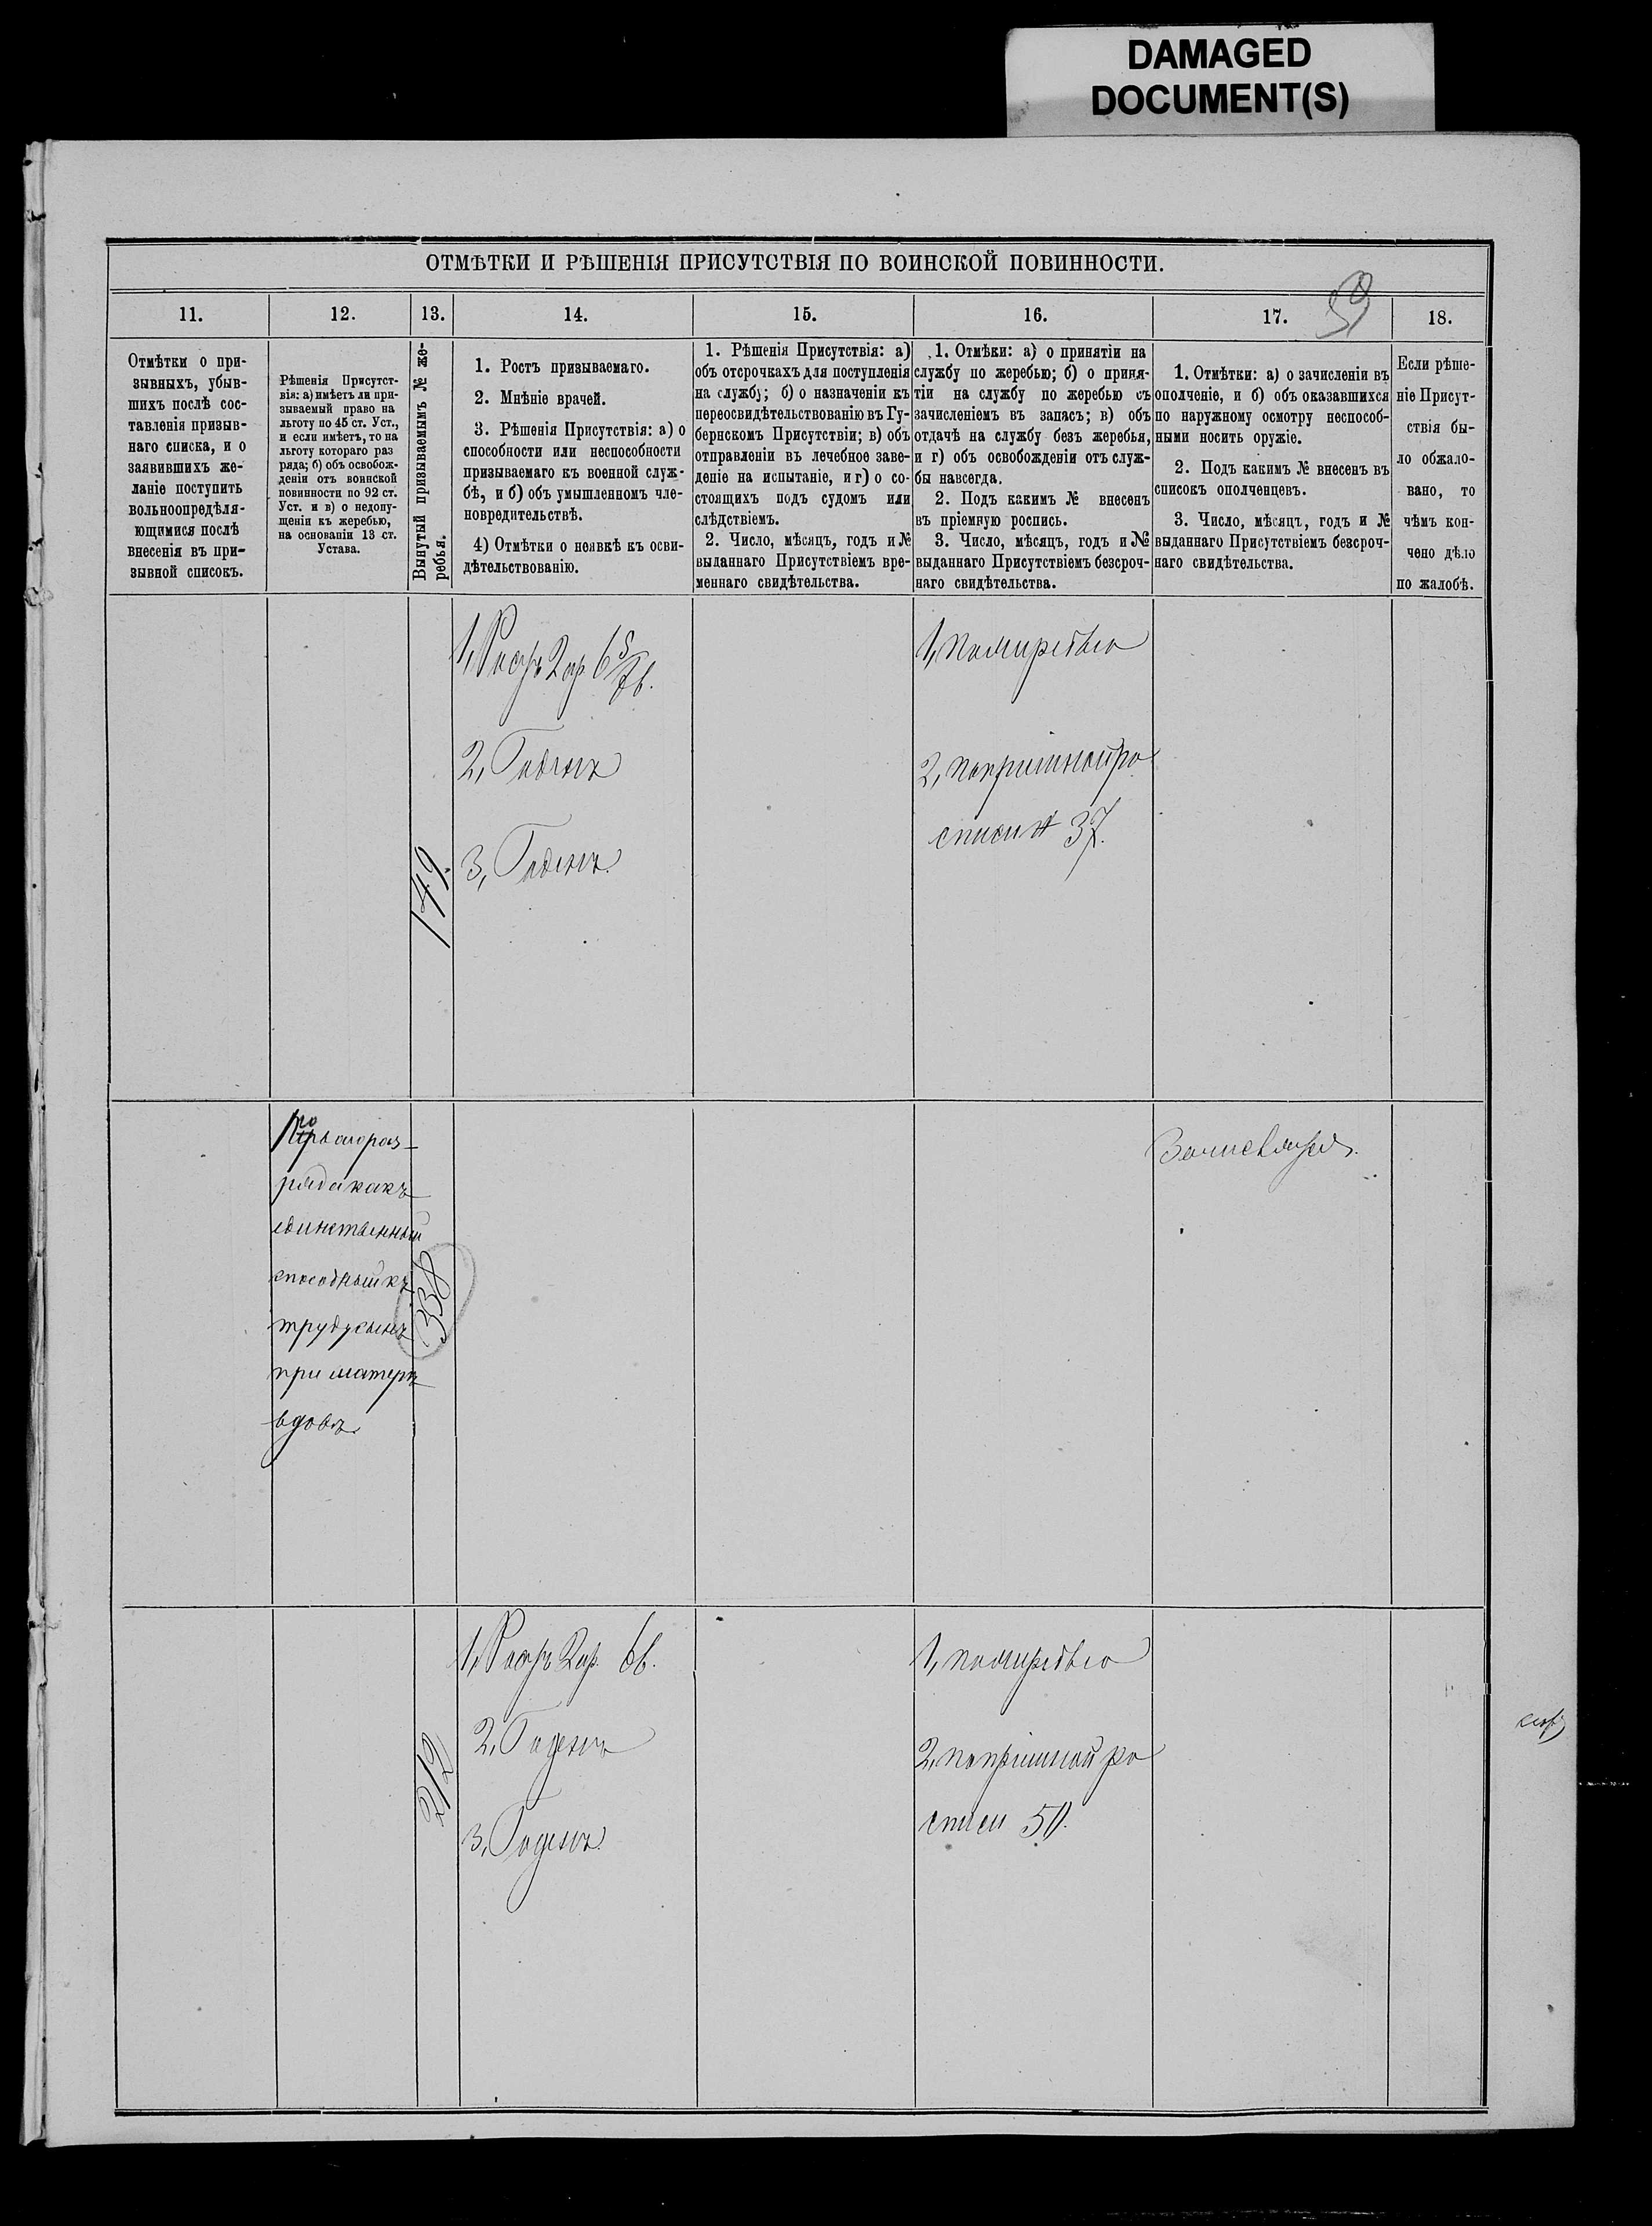 DAMAGED
DOCUMENT(S)
ОТМѢТКИ И РѢШЕНІЯ ПРИСУТСТВІЯ ПО ВОИНСКОЙ ПОВИННОСТИ.
59
11.
12.
13.
14.
15.
16.
17.
18.
Отмѣтки о при-
зывныхъ, убыв-
шихъ послѣ сос-
тавленія призыв-
наго списка, и о
заявившихъ же-
ланіе поступить
вольноопредѣля-
ющимися послѣ
внесенія въ при-
зывной списокъ.
Рѣшенія Присутст-
вія: а) имѣетъ ли при-
зываемый право на
льготу по 45 ст. Уст.,
и если имѣетъ, то на
льготу котораго раз
ряда; б) объ освобож-
деніи отъ воинской
повинности по 92 ст.
Уст. и в) о недопу-
щеніи къ жеребью,
на основаніи 13 ст.
Устава.
Вынутый призываемымъ № же-
ребья.
1. Ростъ призываемаго.
2. Мнѣніе врачей.
3. Рѣшенія Присутствія: а) о
способности или неспособности
призываемаго къ военной служ-
бѣ, и б) объ умышленномъ чле-
новредительствѣ.
4) Отмѣтки о неявкѣ къ осви-
дѣтельствованію.
1. Рѣшенія Присутствія: а)
объ отсрочкахъ для поступленія
на службу; б) о назначеніи къ
переосвидѣтельствованію въ Гу-
бернскомъ Присутствіи; в) объ
отправленіи въ лечебное заве-
деніе на испытаніе, и г) о со-
стоящихъ подъ судомъ или
слѣдствіемъ.
2. Число, мѣсяцъ, годъ и №
выданнаго Присутствіемъ вре-
меннаго свидѣтельства.
1. Отмѣки: а) о принятіи на
службу по жеребью; б) о приня-
тіи на службу по жеребью съ
зачисленіемъ въ запасъ; в) объ
отдачѣ на службу безъ жеребья,
и г) объ освобожденіи отъ служ-
бы навсегда.
2. Подъ какимъ № внесенъ
въ пріемную роспись.
3. Число, мѣсяцъ, годъ и №
выданнаго Присутствіемъ безсроч-
наго свидѣтельства.
1. Отмѣтки: а) о зачисленіи въ
ополченіе, и б) объ оказавшихся
по наружному осмотру неспособ-
ными носить оружіе.
2. Подъ какимъ № внесенъ въ
списокъ ополченцевъ.
3. Число, мѣсяцъ, годъ и №
выданнаго Присутствіемъ безсроч-
наго свидѣтельства.
Если рѣше-
ніе Присут-
ствія бы-
ло обжало-
вано, то
чѣмъ кон-
чено дѣло
по жалобѣ.
149.
1, Ростъ 2 ар 6 5/8 в.
2, Годенъ
3, Годенъ.
1, по жеребью
2, по пріемной ро
списи № 37.
Перваго раз-
ряда какъ
единственный
способный къ
труду сынъ
при матери
вдовѣ.
338
Зачисляется.
212
1, Ростъ 2 ар. 6 в.
2, Годенъ
3, Годенъ.
1, по жеребью
2, по пріемной ро
списи 50.